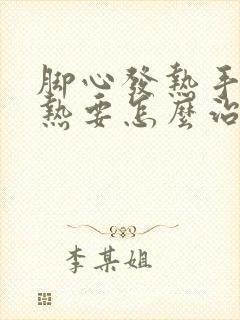 脚心發熱手
熱要怎麼治
李某姐